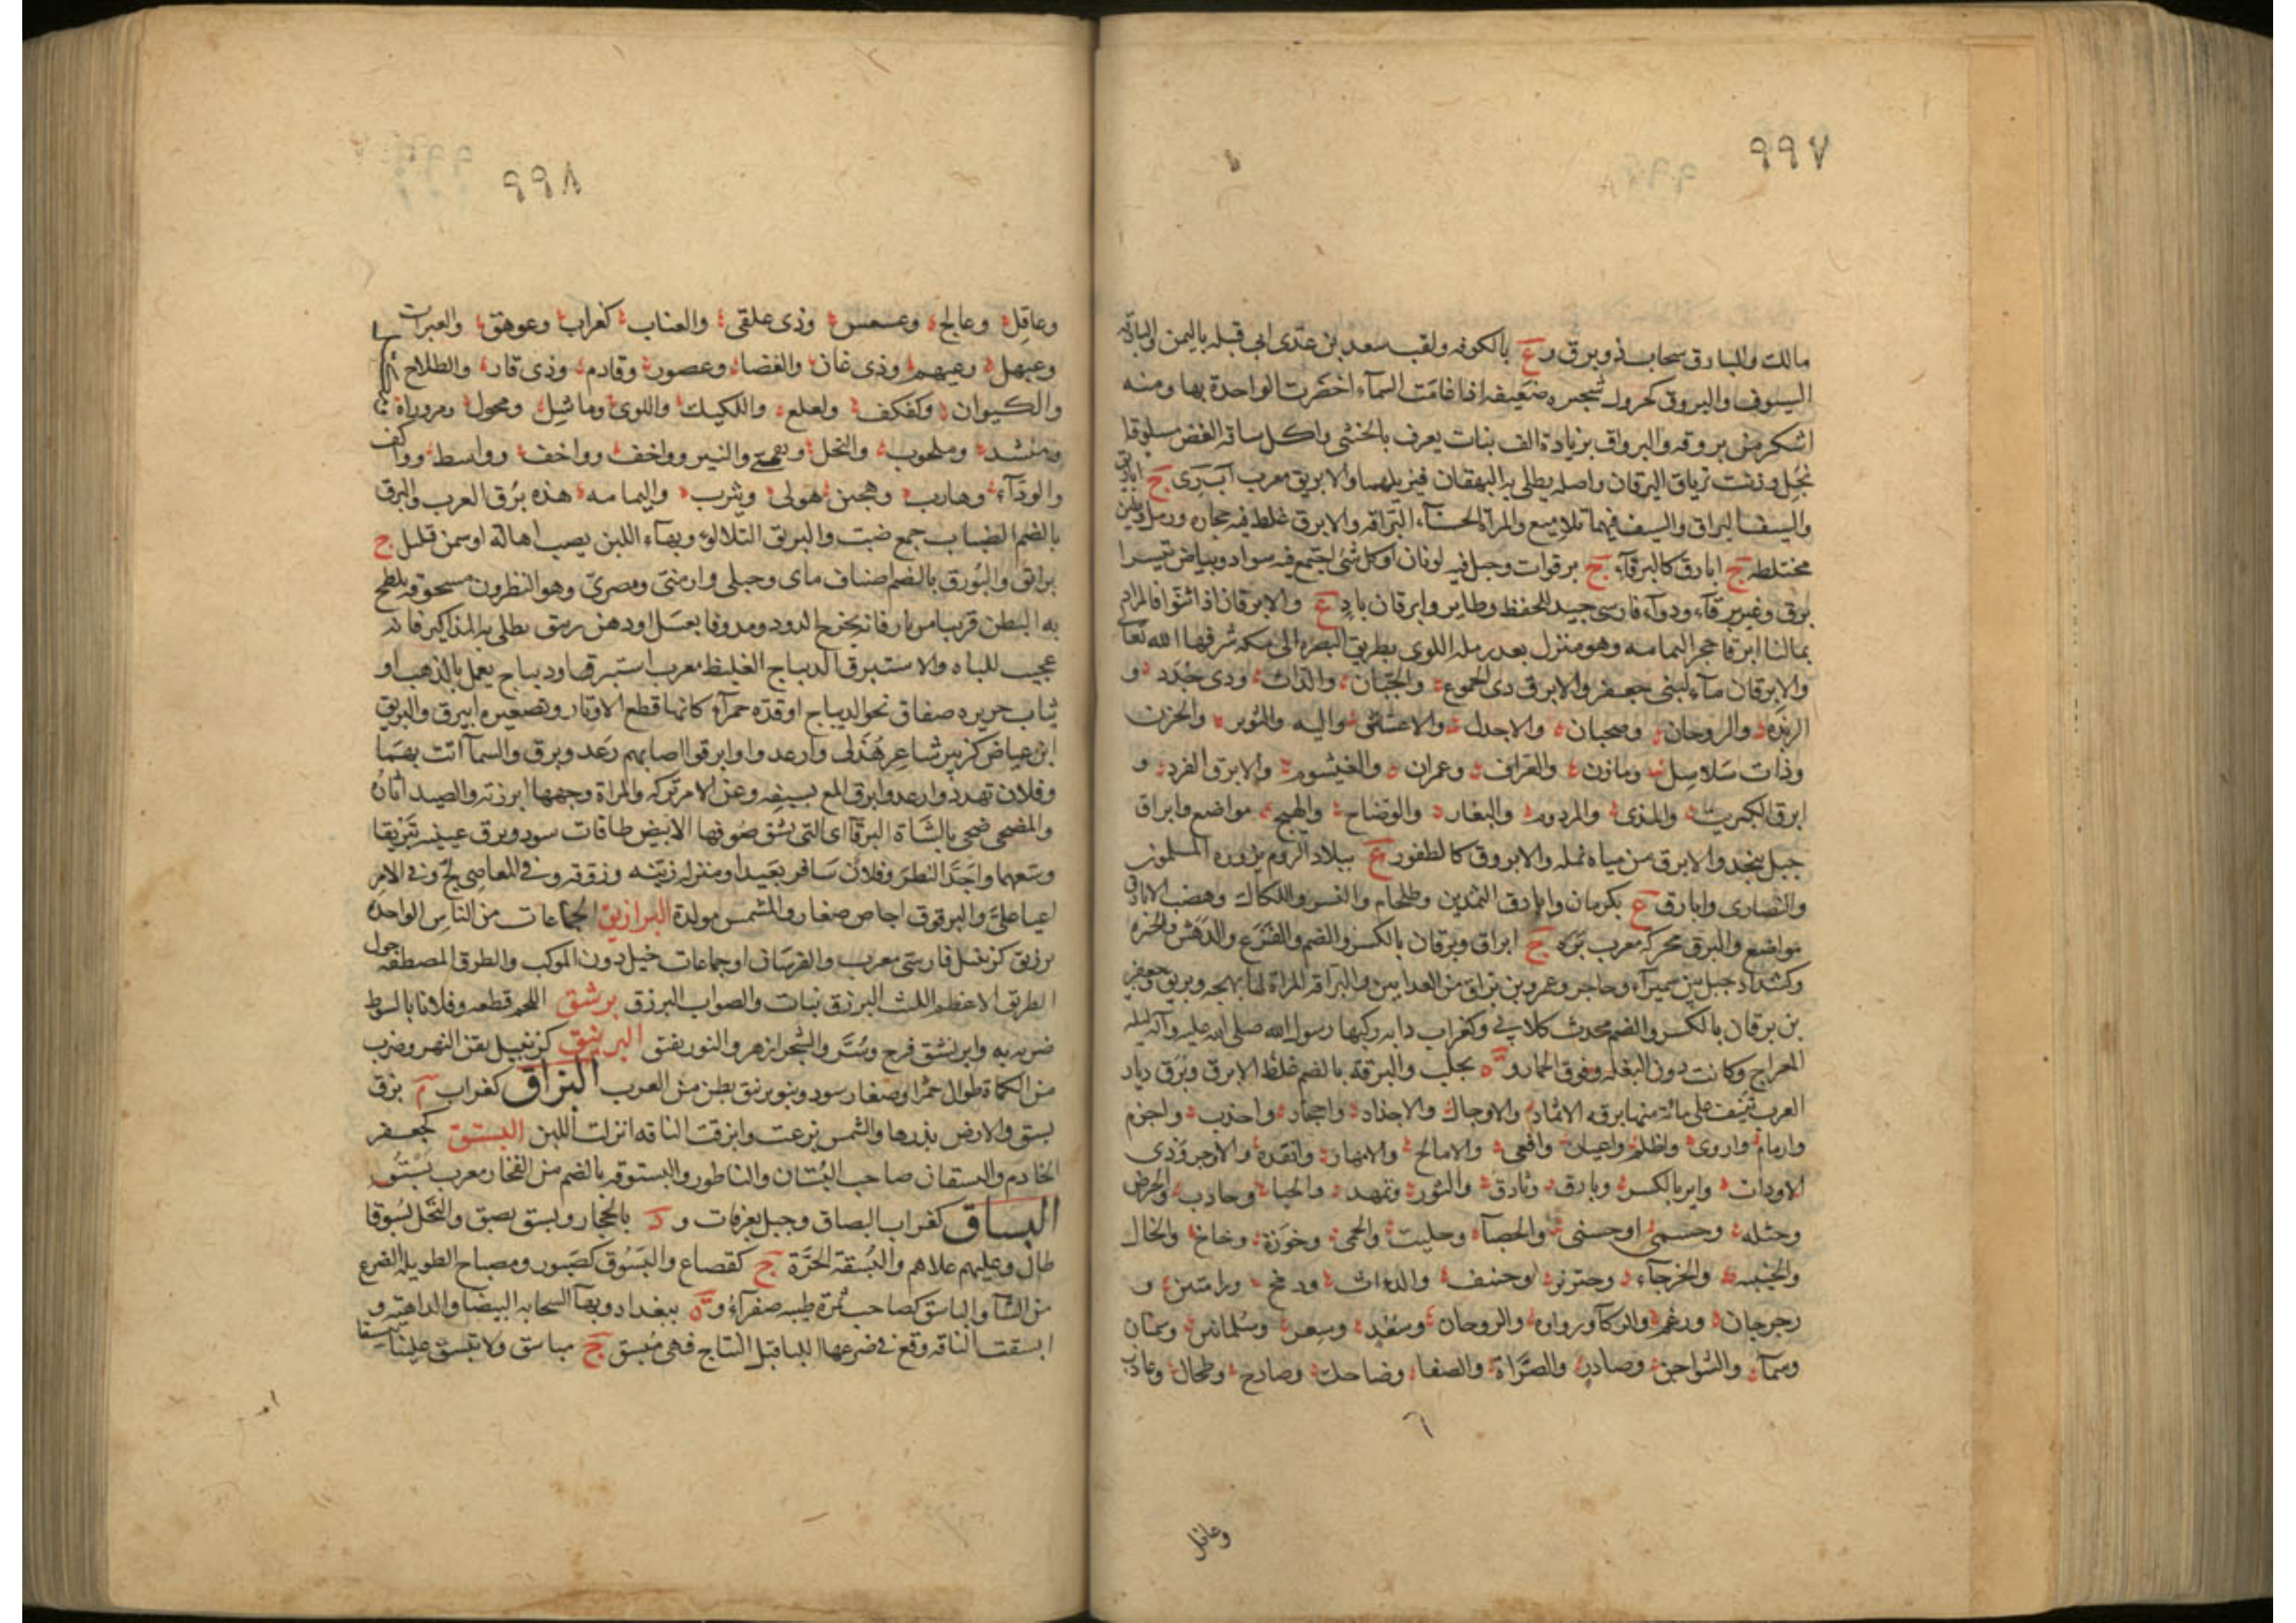 ٩٩٧
مالك والبارق سحاب ذو برق و ع بالكوفه ولقب سعد بن عدى ابى قبله باليمن والبارقه
السيوف والبروق كجرول شجيره ضعيفه اذا غامت السمآء اخضرت الواحدة بهاء ومنه
اشكر من بروقه والبرواق بزيادة الف نبات يعرف بالخنثى واكل ساقه الغض مسلوقا
بخل وزيت ترياق اليرقان واصله يطلى به البهقان فيزيلهما والابريق معرب آب رى ج اباريق
والسيف البراق والسيف فيها تلاميع والمراة الحسنآء البراقه والابرق غلظ فيه حجاره ورمل وطين
مختلطه ج ابارق كالبرقآء ج برقاوات وجبل فيه لونان او كل شئ اجتمع فيه سواد وبياض تيس ا
برق وعنز برقآء ودوآء فارسى جيد للحفظ وطاير وابرقان باد ع والابرقان اذا اثنوا فالمراد
بها لنا ابرقا حجر اليمامه وهو منزل بعد رمله اللوى بطريق البصره الى مكه شرفها الله تعا
والابرقان مآء لبنى جعفر والابرق ذى الجموع والحنان والداث وذى جدد و
الربذه والروحان وضحيان والاجدل والاعشاش واليه والثوير والحزن
وذات سلاسل ومازن والعزاف وعمران والعيشوم والابرق الفرد و
ابرق الكبريت والمدى والمردوم والنعار والوضاح والهيج مواضع وابراق
جبل بنجد والابرق من مياه نمله والابروق كاظفور ع ببلاد الروم يزوره المسلمون
والنصارى وابارق ع بكرمان وابارق الثمدين وطلخام والنسر واللكاك وهضب الابارق
مواضع والبرق محركة معرب بره ج ابراق وبرقان بالكسر والضم والفزع والدهش والحيره
وكشداد جبل بين سميرآء وحاجر وعمرو بن براق من العدايين والبراقه المراة لها بهجه وبريق وجعفر
بن برقان بالكسر والضم محدث كلابى وكغراب دابه ركبها رسول الله صلى الله عليه وآله ليله
المعراج وكانت دون البغله وفوق الحمار و ة بحلب والبرقة بالضم غلظ الابرق وبرق دياد
العرب تنيف على مائة منها برقه الاثماد والاوجال والاجداد واجماد واحدب واجزم
وارمام واروى واظلم واعيار وافعى والامالح والامهار وانقد والاوجر وذى
الاودات واير بالكسر وبارق وثادق والثور وثهمد والجبا وحارب والحرض
وحسله وحسمى او حسنى والحصآء وحليت والحمى وحوزة وخاخ والخال
والخيبه والخرجآء وخنزير او خنف والداث ودمخ ورامتين و
رجرجان ورعم والركآ ورواوه والروحان وسعيد وسعر وسلمانين وسمنان
وسمآء والشواجن وصادر والصراة والصفا وضاحك وضارج وطحال وعاذب
وعاقل
٩٩٨
وعاقل وعالج وعسعس وذى علقى والعناب كغراب وعوهق والعبرات
وعيهل وعيهم وذى غان والغضا وعضور وقادم وذى قار والطلاح
والكبوان وكفكف ولعلع واللكيك واللوى وماسل ومحول ومروراة
ومنشد وملحوب والنخل ونعمى والنير وواخف وواخف وواسط وواكف
والودآء وهارب وهجين هولى ويثرب واليمامه هذه برق العرب والبرق
بالضم الضباب جمع ضبب والبريق التلالوء وبهآء اللبن يصب اهالة او سمن قليل ج
برائق والبورق بالضم اصناف مائى وجبلى وارمنى ومصرى وهو النطرون مسحوقه يلطخ
به البطن قريبا من نار فانه يخرج الدود ومدوفا بعسل او دهن زنبق يطلى به المذاكير فانه
عجيب للباه والاستبرق الديباج الغليظ معرب استبره او ديباج يعمل بالذهب او
ثياب حرير صفاق نحو الديباج او قده حمرآء كانها قطع الاوتار وتصغيره ابيرق والبريق
ابن عياض كزبير شاعر هذلى وارعدوا وابرقوا اصابهم رعد وبرق والسمآ اتت بهما
وفلان تهدد وارعد وابرق المع بسيفه وعن الامر تركه والمراة وجهها ابرزته والصيد اثاره
والمضحى ضحى بالشاة البرقآ اى التى يشق صوفها الابيض طاقات سود وبرق عينيه تبريقا
وسعهما واحد النظر وفلان سافر بعيدا ومنزله زينه وزوقه وفى المعاصى لج وفى الامر
اعيا على والبرقوق اجاص صغار والمشمش مولدة البرازيق الجماعات من الناس الواحد
برزيق كزنبيل فارسى معرب والفرسان او جماعات خيل دون الموكب والطرق المصطفه حول
الطريق الاعظم الليث البرزق نبات والصواب البروق برشق اللحم قطعه وفلانا بالسوط
ضربه به وابرنشق فرح وسر والشجر ازهر والنور تفتق البرنيق كزنبيل بقن النهر وضرب
من الكماة طوال حمر او صغار سود وبنو برنيق بطن من العرب البزاق كغراب م بزق
بسق والارض بذرها والشمس بزغت وابزقت الناقه انزلت اللبن البستق كجعفر
الخادم والبستقان صاحب البستان والناطور والبستوقه بالضم من الفخار معرب بستو
البساق كغراب البصاق وجبل بعرفات و د بالحجاز وبسق بصق والنخل بسوقا
طال وعليهم علاهم والبسقة الحرة ج كقصاع والبسوق كصبور ومصباح الطويله الضرع
من الشآ والباسق كصاحب ثمرة طيبه صفرآء و ة ببغداد وبهآ السحابه البيضا والداهيه و
ابسقت الناقه وقع فى ضرعها اللبا قبل النتاج فهى مبسق ج مباسق ولا تبسق علينا تبسيقا